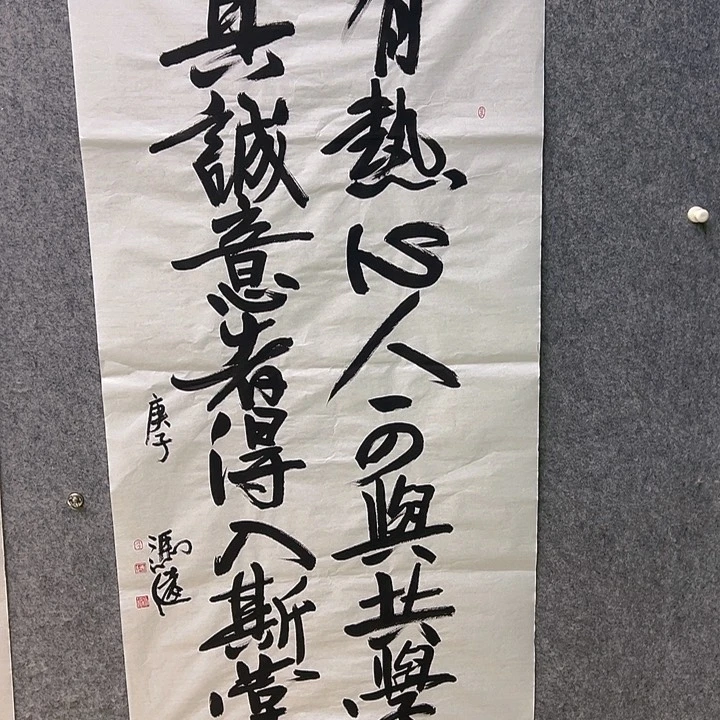 有熱心人可與共學
真誠意者得入斯堂
庚子
馮遠